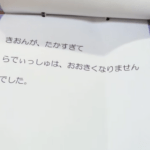 きおんが、たかすぎて
らでぃっしゅは、おおきくなりません
でした。